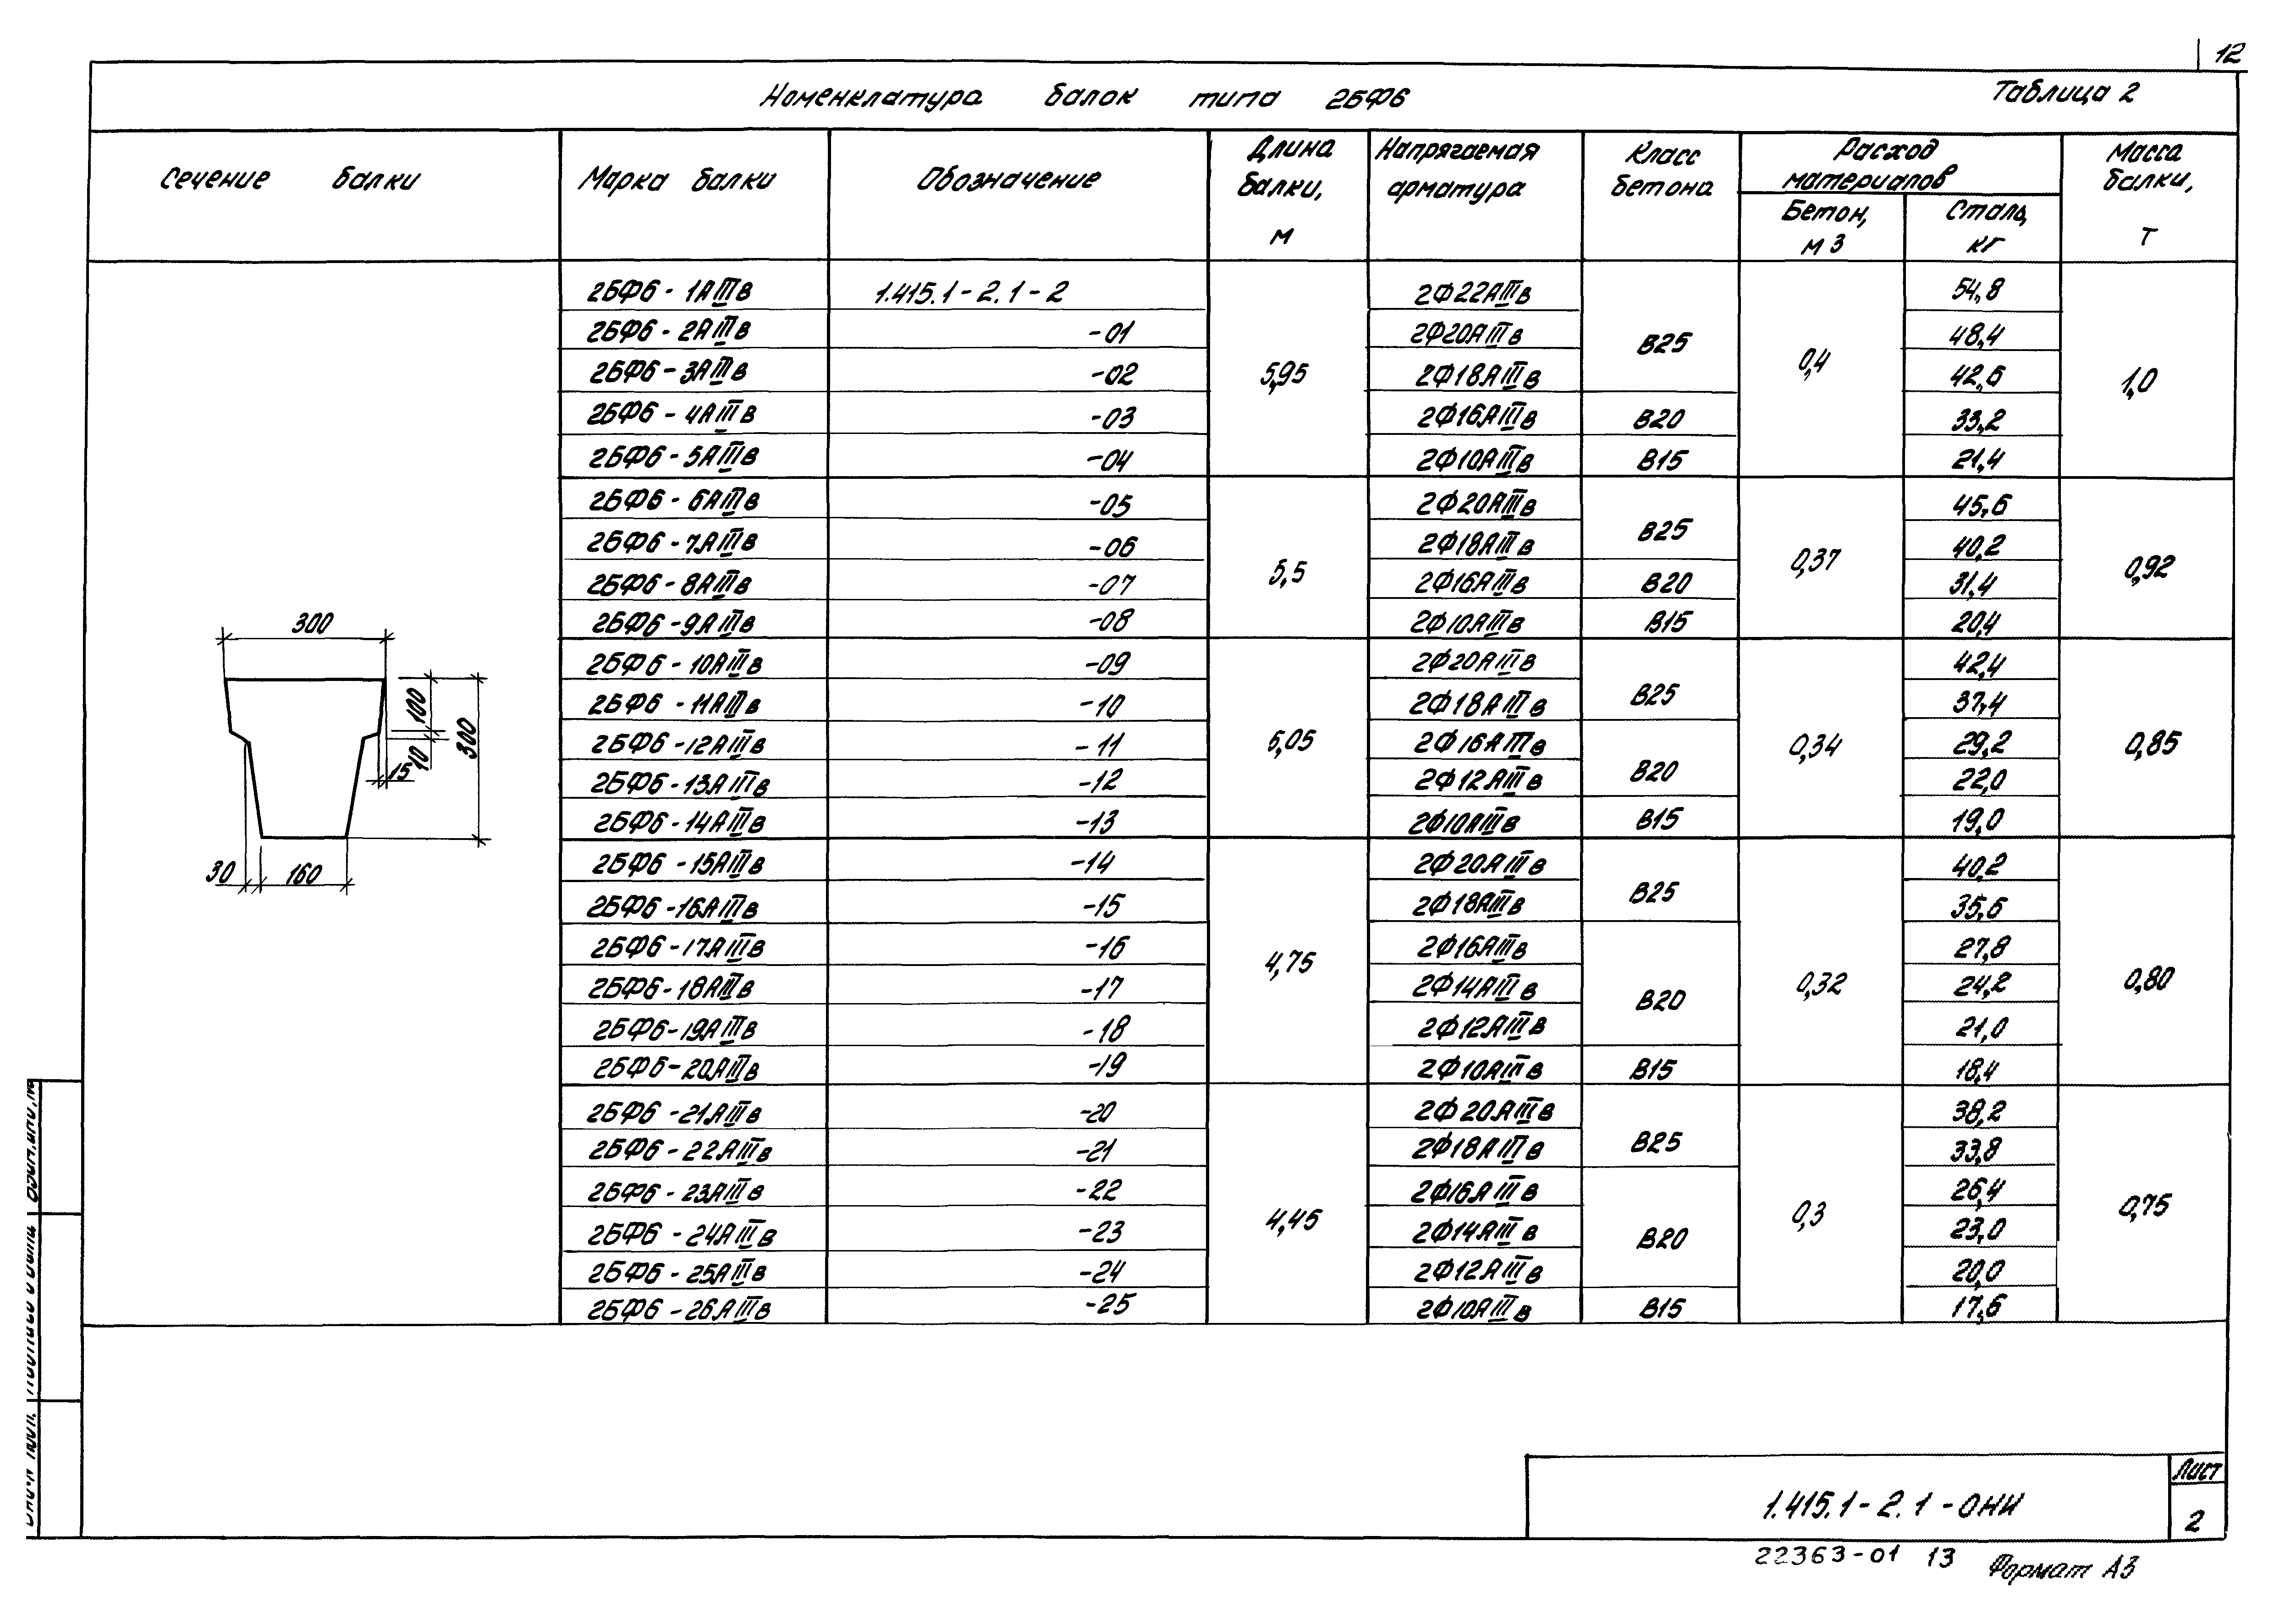 12
Номенклатура балок типа 2БФ6
Таблица 2
Сечение балки
Марка балки
Обозначение
Длина балки, м
Напрягаемая арматура
Класс бетона
Расход материалов
Бетон, м3
Сталь, кг
Масса балки, т
2БФ6 - 1АIIIв 1.415.1 - 2.1 - 2 5,95 2Ф22АIIIв В25 0,4 54,8 1,0
2БФ6 - 2АIIIв -01 2Ф20АIIIв 48,4
2БФ6 - 3АIIIв -02 2Ф18АIIIв 42,6
2БФ6 - 4АIIIв -03 2Ф16АIIIв В20 33,2
2БФ6 - 5АIIIв -04 2Ф10АIIIв В15 21,4
2БФ6 - 6АIIIв -05 5,5 2Ф20АIIIв В25 0,37 45,6 0,92
2БФ6 - 7АIIIв -06 2Ф18АIIIв 40,2
2БФ6 - 8АIIIв -07 2Ф16АIIIв В20 31,4
2БФ6 - 9АIIIв -08 2Ф10АIIIв В15 20,4
2БФ6 - 10АIIIв -09 5,05 2Ф20АIIIв В25 0,34 42,4 0,85
2БФ6 - 11АIIIв -10 2Ф18АIIIв 37,4
2БФ6 - 12АIIIв -11 2Ф16АIIIв В20 29,2
2БФ6 - 13АIIIв -12 2Ф12АIIIв 22,0
2БФ6 - 14АIIIв -13 2Ф10АIIIв В15 19,0
2БФ6 - 15АIIIв -14 4,75 2Ф20АIIIв В25 0,32 40,2 0,80
2БФ6 - 16АIIIв -15 2Ф18АIIIв 35,6
2БФ6 - 17АIIIв -16 2Ф16АIIIв В20 27,8
2БФ6 - 18АIIIв -17 2Ф14АIIIв 24,2
2БФ6 - 19АIIIв -18 2Ф12АIIIв 21,0
2БФ6 - 20АIIIв -19 2Ф10АIIIв В15 18,4
2БФ6 - 21АIIIв -20 4,45 2Ф20АIIIв В25 0,3 38,2 0,75
2БФ6 - 22АIIIв -21 2Ф18АIIIв 33,8
2БФ6 - 23АIIIв -22 2Ф16АIIIв В20 26,4
2БФ6 - 24АIIIв -23 2Ф14АIIIв 23,0
2БФ6 - 25АIIIв -24 2Ф12АIIIв 20,0
2БФ6 - 26АIIIв -25 2Ф10АIIIв В15 17,6
300
100
300
10
15
30
160
1.415.1 - 2.1 - ОНИ
Лист
2
22363-01 13
Формат А3